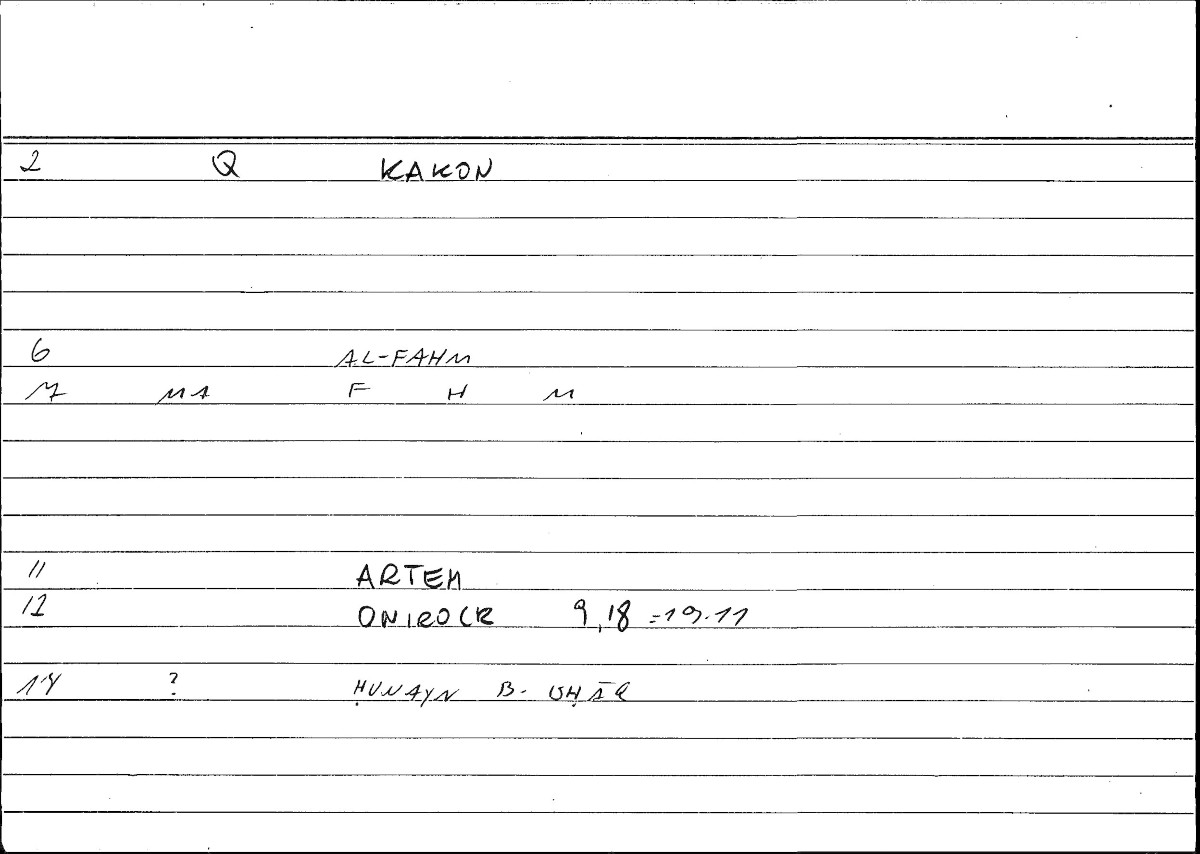 2 Q KAKON
6 AL-FAHM
7 MA F H M
11 ARTEM
12 ONIROCR 9,18 =19.11
14 ? ḤUNAYN B. ISḤĀQ